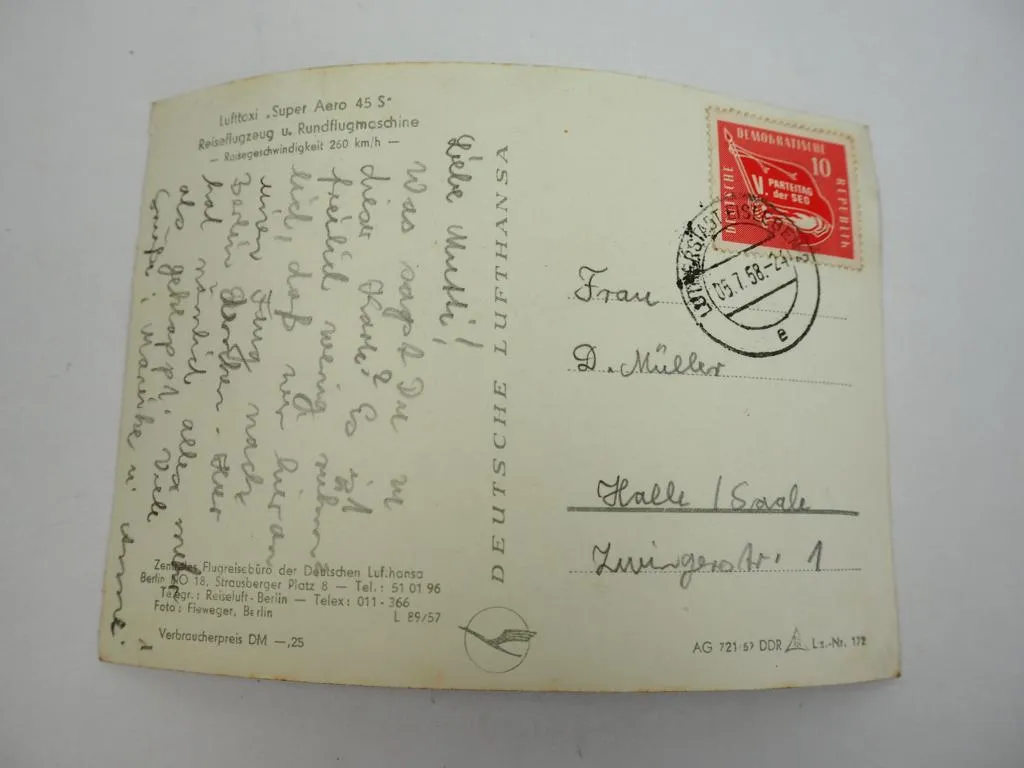 Lufttaxi „Super Aero 45 S"
Reiseflugzeug u. Rundflugmaschine
— Reisegeschwindigkeit 260 km/h —
Liebe Mutti!
Was sagst Du zu
dieser Karte? Es ist
daß wir hier an
einen Flug nach
Berlin
hat nämlich alles
als geklappt. Viele
Grüße
DEUTSCHE LUFTHANSA
Zentrales Flugreisebüro der Deutschen Lufthansa
Berlin NO 18, Strausberger Platz 8 — Tel.: 51 01 96
Telegr.: Reiseluft-Berlin — Telex: 011-366
Foto: Fieweger, Berlin
L 89/57
Verbraucherpreis DM —,25
DEUTSCHE DEMOKRATISCHE REPUBLIK
10
V. PARTEITAG
der SED
LUTHERSTADT EISLEBEN 2
05.7.58.-24
e
Frau
D. Müller
Halle / Saale
Zwingerstr. 1
AG 721/57 DDR Lz.-Nr. 172